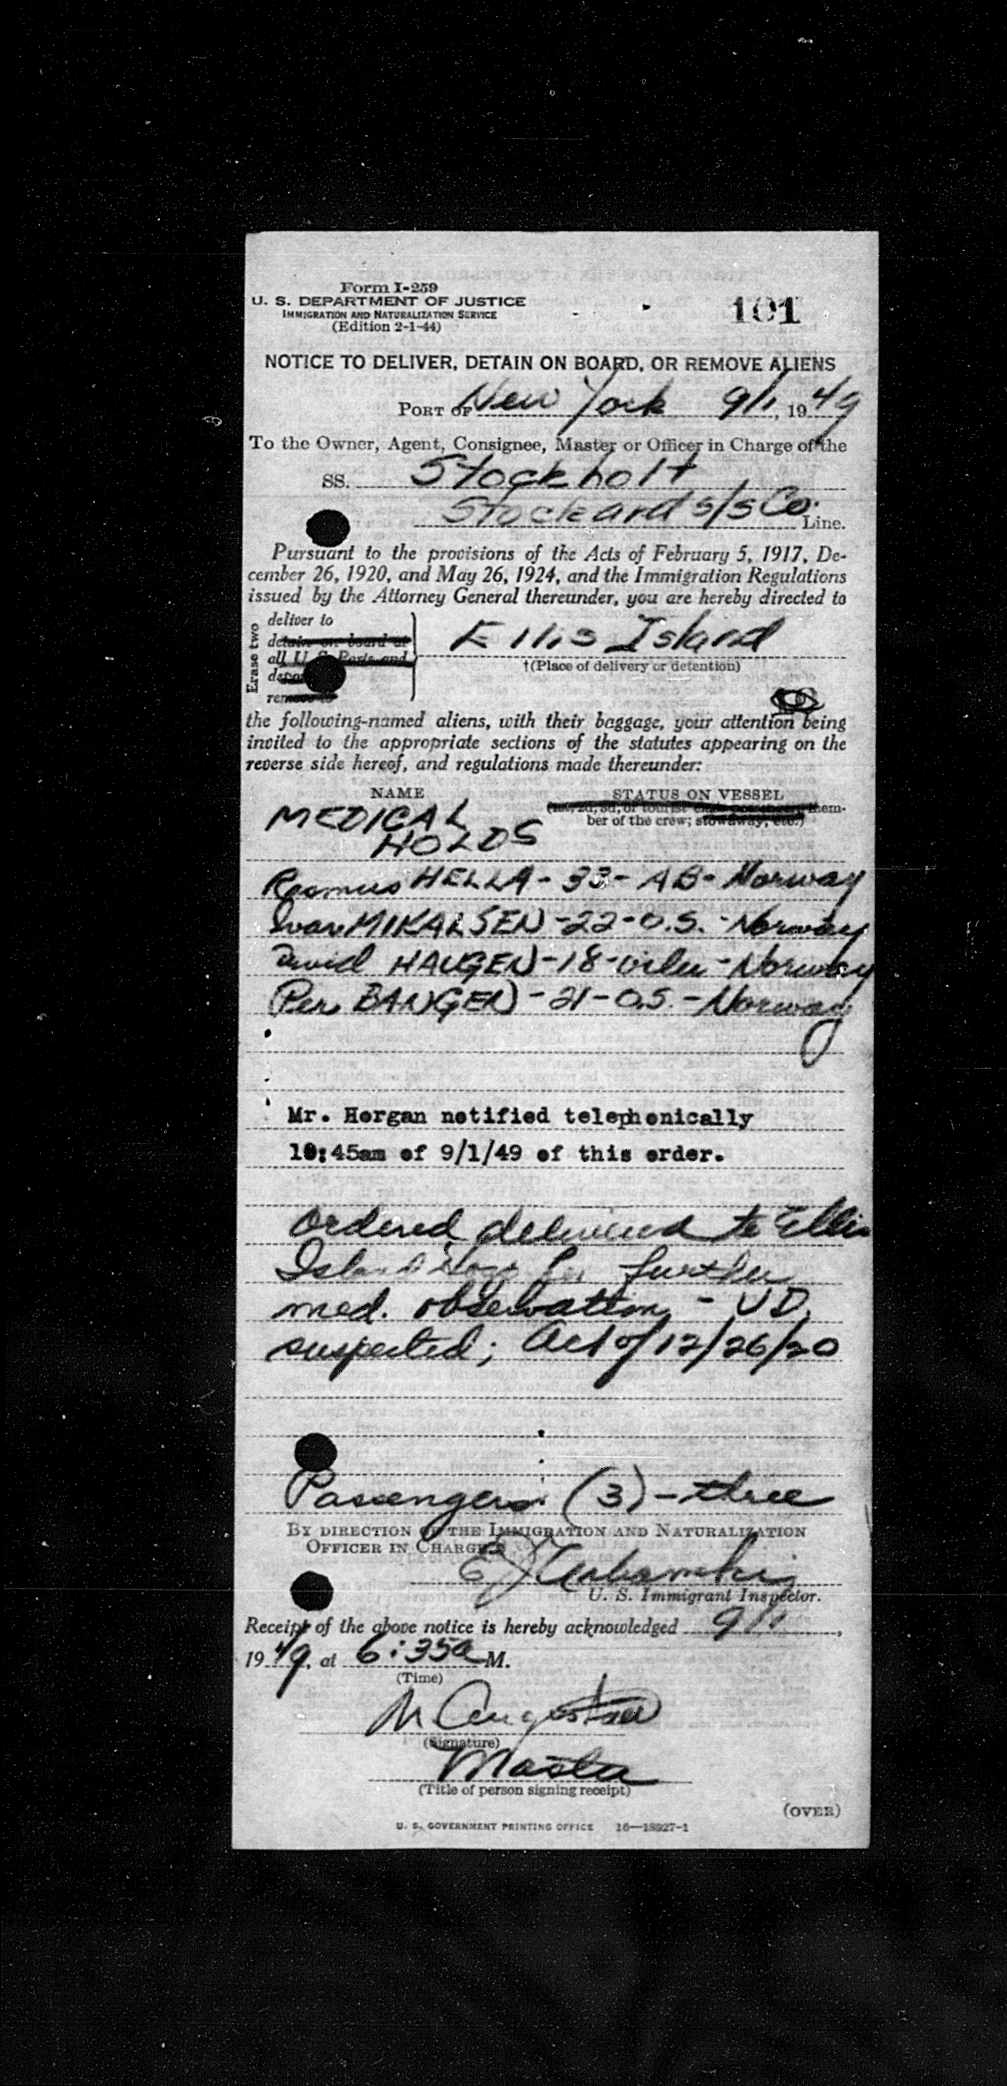 Form I-259
U. S. DEPARTMENT OF JUSTICE
IMMIGRATION AND NATURALIZATION SERVICE
(Edition 2-1-44)
101
NOTICE TO DELIVER, DETAIN ON BOARD, OR REMOVE ALIENS
PORT OF New York 9/1, 1949
To the Owner, Agent, Consignee, Master or Officer in Charge of the
SS. Stockholt
Stockard S/S Co. Line.
Pursuant to the provisions of the Acts of February 5, 1917, De-
cember 26, 1920, and May 26, 1924, and the Immigration Regulations
issued by the Attorney General thereunder, you are hereby directed to
Erase two
deliver to
detain on board at
all U. S. Ports and
remove to
Ellis Island
†(Place of delivery or detention)
the following-named aliens, with their baggage, your attention being
invited to the appropriate sections of the statutes appearing on the
reverse side hereof, and regulations made thereunder:
NAME
STATUS ON VESSEL
(1st, 2d, 3d, or tourist class passenger; mem-
ber of the crew; stowaway, etc.)
MEDICAL
HOLDS
Rasmus HELLA - 33 - AB - Norway
Ivar MIKALSEN - 22 - O.S. - Norway
David HAUGEN - 18 - oiler - Norway
Per BANGEN - 21 - O.S. - Norway
Mr. Horgan notified telephonically
10:45am of 9/1/49 of this order.
Ordered delivered to Ellis
Island for further
med. observation - VD
suspected; Act of 12/26/20
Passengers (3) - three
BY DIRECTION OF THE IMMIGRATION AND NATURALIZATION
OFFICER IN CHARGE
U. S. Immigrant Inspector.
Receipt of the above notice is hereby acknowledged 9/1,
1949, at 6:35a M.
(Time)
(Signature)
Master
(Title of person signing receipt)
(OVER)
U. S. GOVERNMENT PRINTING OFFICE 16—18927-1